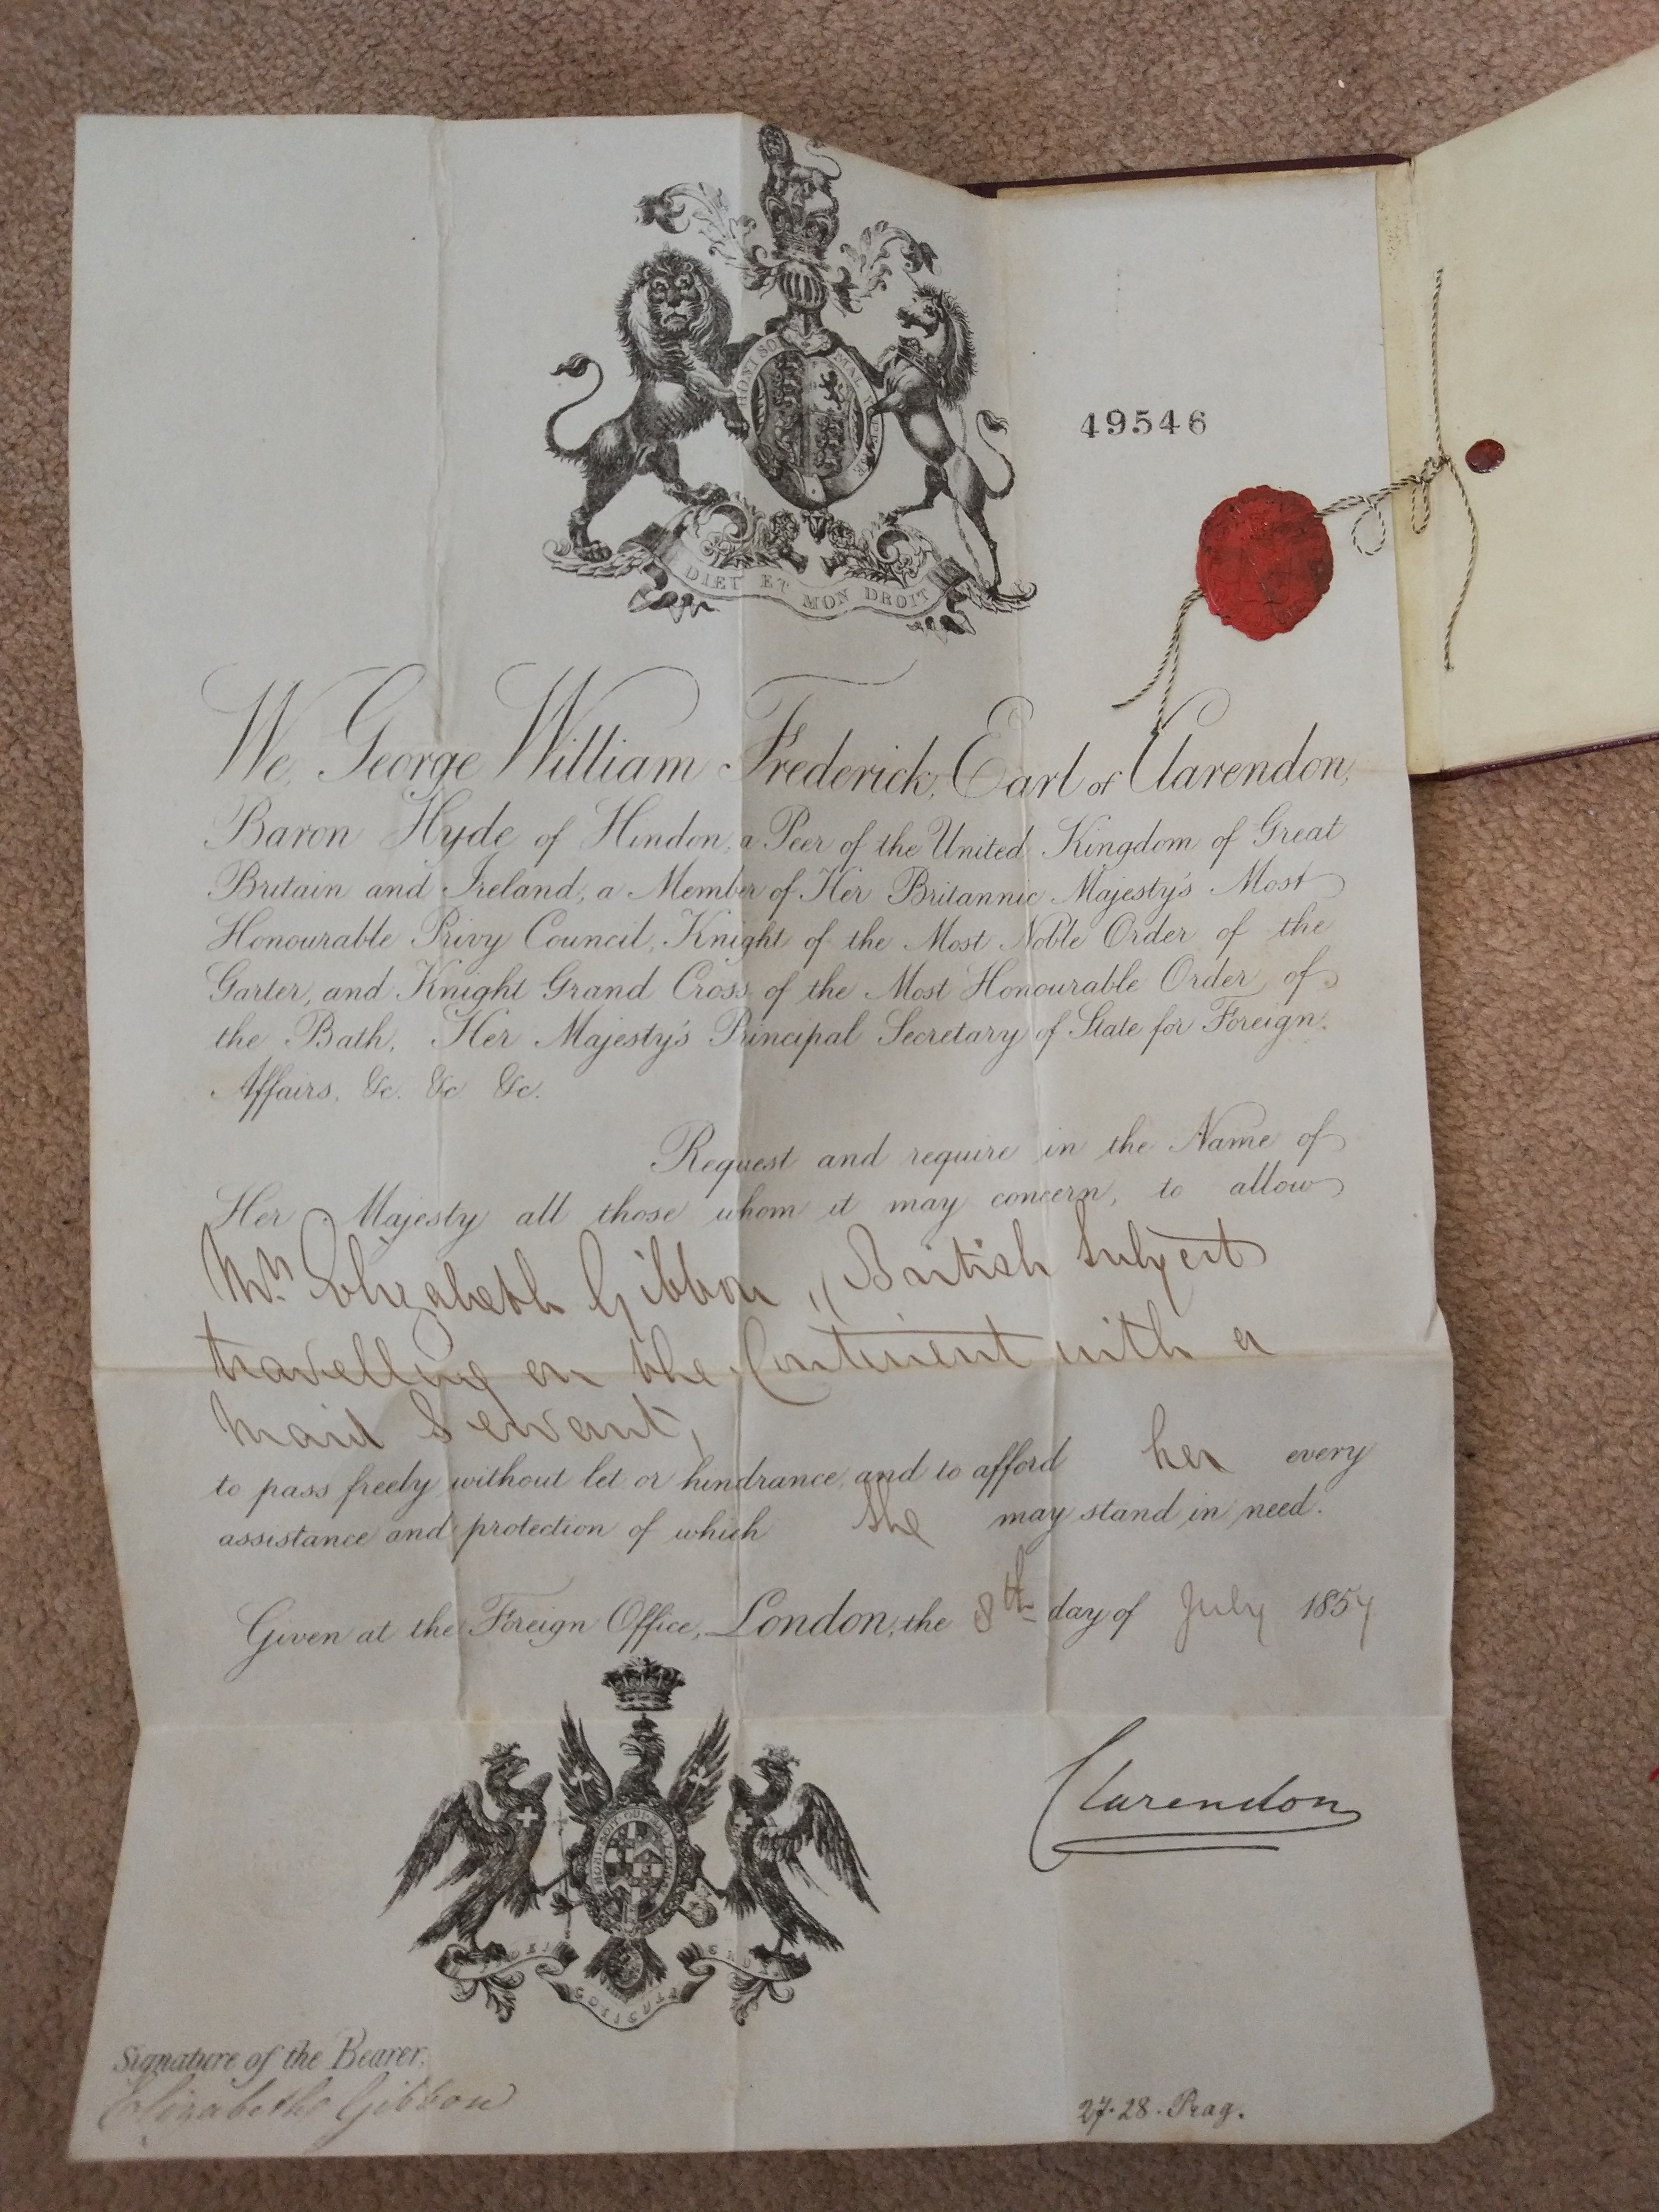 HONI SOI MAL PENSE
DIEU ET MON DROIT
49546
We, George William Frederick, Earl of Clarendon,
Baron Hyde of Hindon, a Peer of the United Kingdom of Great
Britain and Ireland, a Member of Her Britannic Majesty's Most
Honourable Privy Council, Knight of the Most Noble Order of the
Garter, and Knight Grand Cross of the Most Honourable Order of
the Bath, Her Majesty's Principal Secretary of State for Foreign
Affairs, &c. &c. &c.
Request and require in the Name of
Her Majesty all those whom it may concern, to allow
Mrs. Elizabeth Gibbon, (British Subject
travelling on the Continent with a
Maid Servant,
to pass freely without let or hindrance, and to afford her every
assistance and protection of which she may stand in need.
Given at the Foreign Office, London, the 8th day of July 1857
Clarendon
Signature of the Bearer.
Elizabeth Gibbon
27.28. Prag.